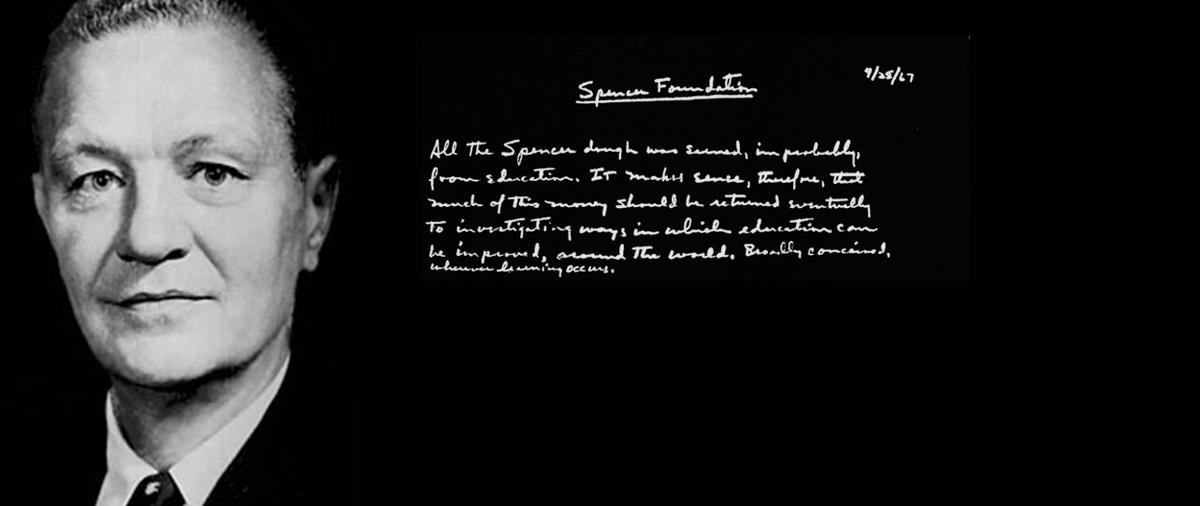 Spencer Foundation
9/25/67
All the Spencer dough was earned, improbably,
from education. It makes sense, therefore, that
much of this money should be returned eventually
to investigating ways in which education can
be improved, around the world. Broadly conceived,
wherever learning occurs.